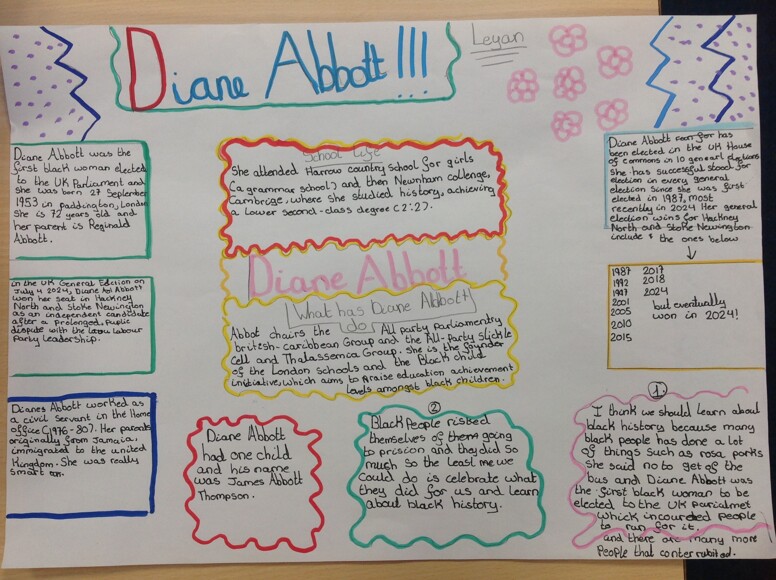 Diane Abbott!!!
Leyan
Diane Abbott was the
first black woman elected
to the UK Parliament and
she was born 27 September
1953 in paddington, London
She is 72 years old and
her parent is Reginald
Abbott.
in the UK General Election on
July 4 2024, Diane Abbott
won her seat in Hackney
North and Stoke Newington
as an independent candidate
after a prolonged, public
dispute with the Labour
Party Leadership.
Dianes Abbott worked as
a civil servant in the Home
office (1976-80). Her parents
originally from Jamaica,
immigrated to the united
Kingdom. She was really
smart
School Life
She attended Harrow country school for girls
(a grammar school) and then Newnham collenge,
Cambrige, where she studied history, achieving
a lower second-class degree (2:2).
Diane Abbott
What has Diane Abbott
do
Abbot chairs the All party parliamentry
british-caribbean Group and the All-party Sickle
Cell and Thalassemica Group. She is the founder
of the London Schools and the Black child
initiative, which aims to raise education achievement
levels amongst black children.
Diane Abbott
had one child
and his name
was James Abbott
Thompson.
2
Black People risked
themselves of them going
to prision and they did so
much so the least me we
could do is celebrate what
they did for us and learn
about black history.
Diane Abbott for has
been elected in the UK House
of commons in 10 general elections
she has successful stood for
election in every general
election since she was first
elected in 1987, most
recently in 2024 Her general
election wins for Hackney
North and Stoke Newington
include the ones below
1987 2017
1992 2018
1997 2024
2001 but eventually
2005 won in 2024!
2010
2015
1.
I think we should learn about
black history because many
black people has done a lot
of things such as rosa parks
she said no to get of the
bus and Diane Abbott was
the first black woman to be
elected to the UK Parliadmet
which incoureded people
to run for it.
and there are many more
People that conterrubited.